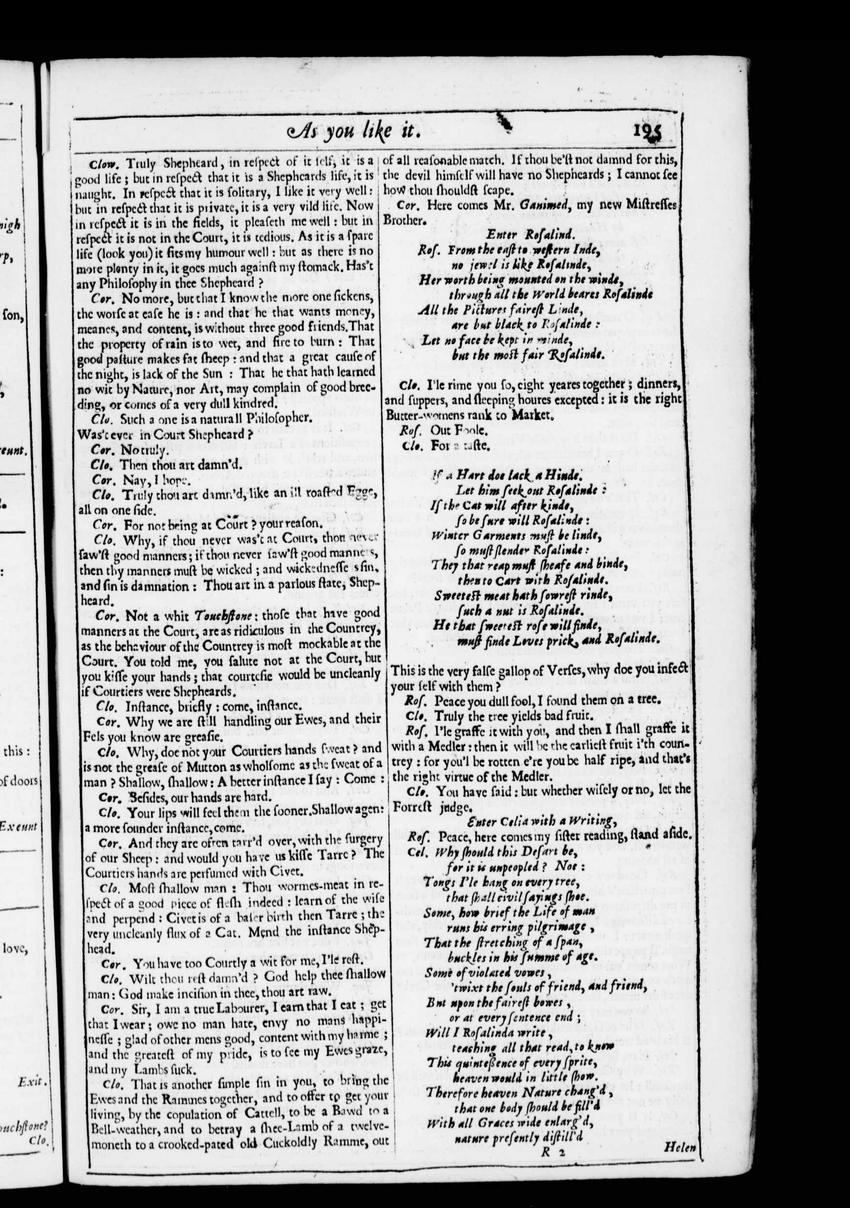 As you like it.
195
Clow. Truly Shepheard, in reſpect of it ſelf, it is a
good life; but in reſpect that it is a Shepheards life, it is
naught. In reſpect that it is ſolitary, I like it very well:
but in reſpect that it is private, it is a very vild life. Now
in reſpect it is in the fields, it pleaſeth me well: but in
reſpect it is not in the Court, it is tedious. As it is a ſpare
life (look you) it fits my humour well: but as there is no
more plenty in it, it goes much againſt my ſtomack. Has't
any Philoſophy in thee Shepheard?
Cor. No more, but that I know the more one ſickens,
the worſe at eaſe he is: and that he that wants money,
meanes, and content, is without three good friends. That
the property of rain is to wet, and fire to burn: That
good paſture makes fat ſheep: and that a great cauſe of
the night, is lack of the Sun: That he that hath learned
no wit by Nature, nor Art, may complain of good bree-
ding, or comes of a very dull kindred.
Clo. Such a one is a naturall Philoſopher.
Was't ever in Court Shepheard?
Cor. No truly.
Clo. Then thou art damn'd.
Cor. Nay, I hope.
Clo. Truly thou art damn'd, like an ill roaſted Egge,
all on one ſide.
Cor. For not being at Court? your reaſon.
Clo. Why, if thou never was't at Court, thou never
ſaw'ſt good manners; if thou never ſaw'ſt good manners,
then thy manners muſt be wicked; and wickedneſſe s ſin,
and ſin is damnation: Thou art in a parlous ſtate, Shep-
heard.
Cor. Not a whit Touchſtone: thoſe that have good
manners at the Court, are as ridiculous in the Countrey,
as the behaviour of the Countrey is moſt mockable at the
Court. You told me, you ſalute not at the Court, but
you kiſſe your hands; that courteſie would be uncleanly
if Courtiers were Shepheards.
Clo. Inſtance, briefly: come, inſtance.
Cor. Why we are ſtill handling our Ewes, and their
Fels you know are greaſie.
Clo. Why, doe not your Courtiers hands ſweat? and
is not the greaſe of Mutton as wholſome as the ſweat of a
man? Shallow, ſhallow: A better inſtance I ſay: Come:
Cor. Beſides, our hands are hard.
Clo. Your lips will feel them the ſooner. Shallow agen:
a more ſounder inſtance, come.
Cor. And they are often tarr'd over, with the ſurgery
of our Sheep: and would you have us kiſſe Tarre? The
Courtiers hands are perfumed with Civet.
Clo. Moſt ſhallow man: Thou wormes-meat in re-
ſpect of a good piece of fleſh indeed: learn of the wiſe
and perpend: Civet is of a baſer birth then Tarre; the
very uncleanly flux of a Cat. Mend the inſtance Shep-
head.
Cor. You have too Courtly a wit for me, I'le reſt.
Clo. Wilt thou reſt damn'd? God help thee ſhallow
man: God make inciſion in thee, thou art raw.
Cor. Sir, I am a true Labourer, I earn that I eat; get
that I wear; owe no man hate, envy no mans happi-
neſſe; glad of other mens good, content with my harme;
and the greateſt of my pride, is to ſee my Ewes graze,
and my Lambs ſuck.
Clo. That is another ſimple ſin in you, to bring the
Ewes and the Rammes together, and to offer to get your
living, by the copulation of Cattell, to be a Bawd to a
Bell-weather, and to betray a ſhee-Lamb of a twelve-
moneth to a crooked-pated old Cuckoldly Ramme, out
of all reaſonable match. If thou be'ſt not damnd for this,
the devil himſelf will have no Shepheards; I cannot ſee
how thou ſhouldſt ſcape.
Cor. Here comes Mr. Ganimed, my new Miſtreſſes
Brother.
Enter Roſalind.
Roſ. From the eaſt to weſtern Inde,
no jewel is like Roſalinde,
Her worth being mounted on the winde,
through all the World beares Roſalinde
All the Pictures faireſt Linde,
are but black to Roſalinde:
Let no face be kept in minde,
but the moſt fair Roſalinde.
Clo. I'le rime you ſo, eight yeares together; dinners,
and ſuppers, and ſleeping houres excepted: it is the right
Butter-womens rank to Market.
Roſ. Out Foole.
Clo. For a taſte.
If a Hart doe lack a Hinde,
Let him ſeek out Roſalinde:
If the Cat will after kinde,
ſo be ſure will Roſalinde:
Winter Garments muſt be linde,
ſo muſt ſlender Roſalinde:
They that reap muſt ſheafe and binde,
then to Cart with Roſalinde.
Sweeteſt meat hath ſowreſt rinde,
ſuch a nut is Roſalinde.
He that ſweeteſt roſe will finde,
muſt finde Loves prick, and Roſalinde.
This is the very falſe gallop of Verſes, why doe you infect
your ſelf with them?
Roſ. Peace you dull fool, I found them on a tree.
Clo. Truly the tree yields bad fruit.
Roſ. I'le graffe it with you, and then I ſhall graffe it
with a Medler: then it will be the earlieſt fruit i'th coun-
trey: for you'l be rotten e're you be half ripe, and that's
the right virtue of the Medler.
Clo. You have ſaid: but whether wiſely or no, let the
Forreſt judge.
Enter Celia with a Writing,
Roſ. Peace, here comes my ſiſter reading, ſtand aſide.
Cel. Why ſhould this Deſart be,
for it is unpeopled? Noe:
Tongs I'le hang on every tree,
that ſhall civil ſayings ſhoe.
Some, how brief the Life of man
runs his erring pilgrimage,
That the ſtretching of a ſpan,
buckles in his ſumme of age.
Some of violated vowes,
'twixt the ſouls of friend, and friend,
But upon the faireſt bowes,
or at every ſentence end;
Will I Roſalinda write,
teaching all that read, to know
This quinteſſence of every ſprite,
heaven would in little ſhow.
Therefore heaven Nature chang'd,
that one body ſhould be fill'd
With all Graces wide enlarg'd,
nature preſently diſtill'd
R 2
Helen
nigh
rp,
ſon,
eunt.
this:
of doors
Exeunt
love,
Exit.
ouchſtone?
Clo.